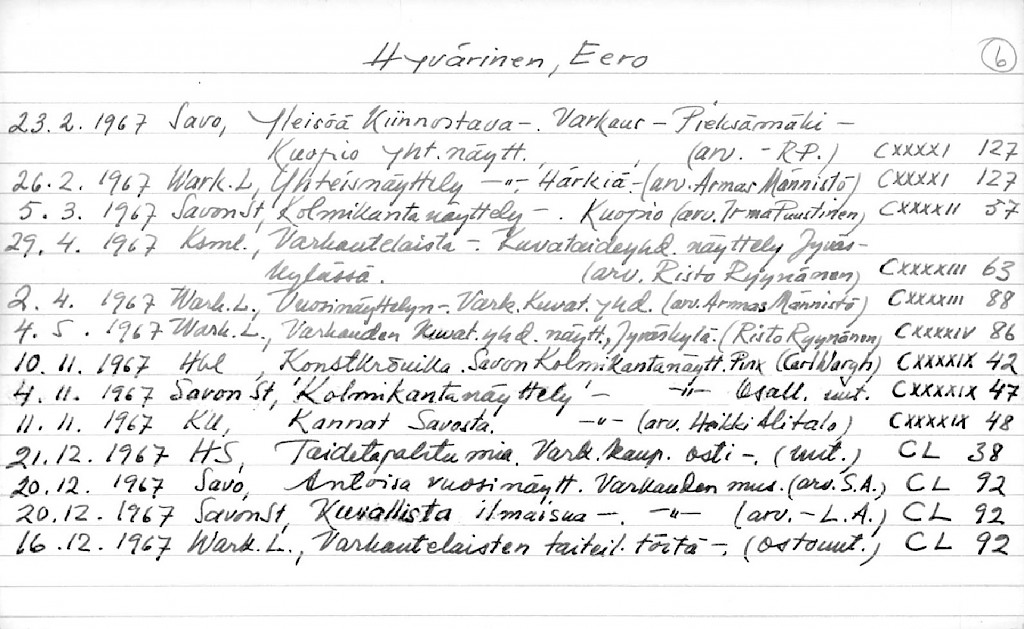 Hyvärinen, Eero 6
23.2.1967 Savo, Yleisöä Kiinnostava -. Varkaus - Pieksämäki -
Kuopio yht. näytt. , , (arv. - R.P.) CXXXXI 127
26.2.1967 Wark.L, Yhteisnäyttely -"- Härkiä.-(arv. Armas Männistö) CXXXXI 127
5.3.1967 Savon St, Kolmikantanäyttely -. Kuopio (arv. Irma Puustinen) CXXXXII 57
29.4.1967 Ksml., Varkautelaista -. Kuvataideyhd. näyttely Jyväs-
kylässä. (arv. Risto Ryynänen) CXXXXIII 63
2.4.1967 Wark.L., Vuosinäyttelyn -. Vark. Kuvat. yhd. (arv. Armas Männistö) CXXXXIII 88
4.5.1967 Wark.L., Varkauden kuvat. yhd. näytt., Jyväskylä. (Risto Ryynänen) CXXXXIV 86
10.11.1967 Hbl, Konstkrönika. Savon Kolmikantanäytt. Pinx (Carl Wargh) CXXXXIX 42
4.11.1967 Savon St, 'Kolmikantanäyttely' - -"- Osall. uut. CXXXXIX 47
11.11.1967 KU, Kannat Savosta. -"- (arv. Heikki Alitalo) CXXXXIX 48
21.12.1967 HS, Taidetapahtumia. Vark. kaup. osti -. (uut.) CL 38
20.12.1967 Savo, Antoisa vuosinäytt. Varkauden mus. (arv. S.A.) CL 92
20.12.1967 Savon St, Kuvallista ilmaisua -. -"- (arv. - L.A.) CL 92
16.12.1967 Wark.L., Varkautelaisten taiteil. töitä -. (ostouut.) CL 92